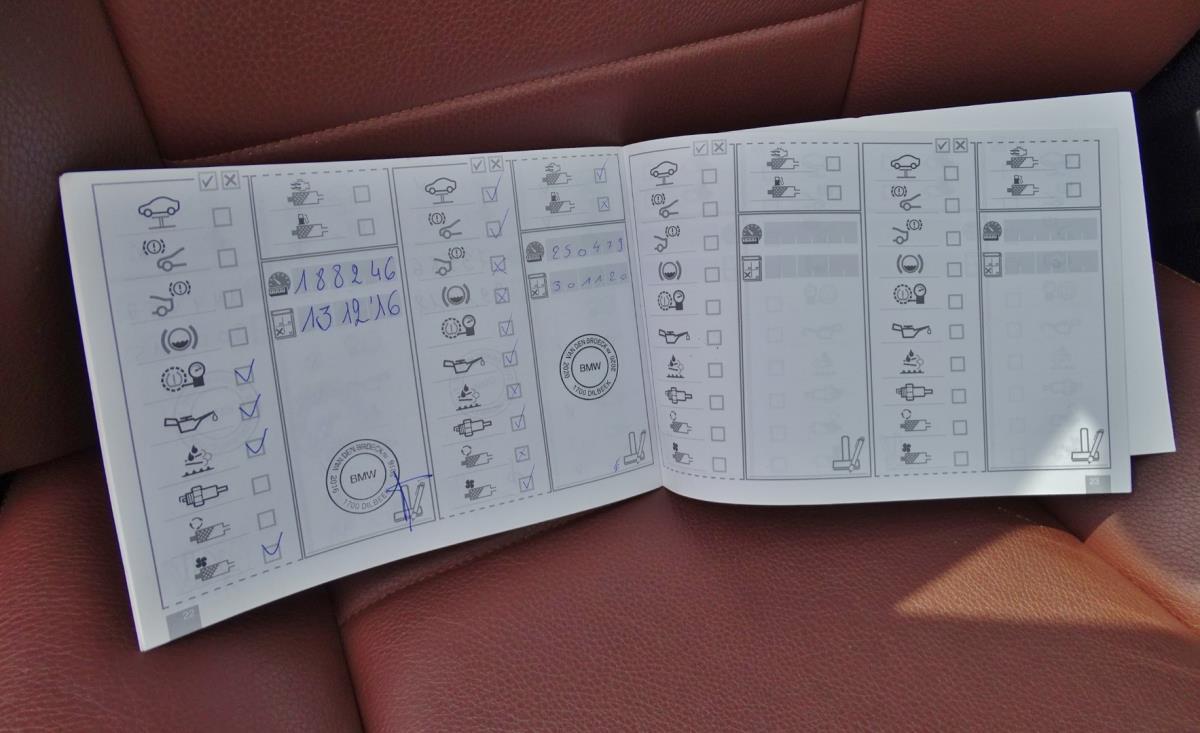 188246
13 12'16
VAN DEN BROECK
2016
BMW
1700 DILBEEK
22
250479
301120
VAN DEN BROECK NV
2020 2020
BMW
1700 DILBEEK
23